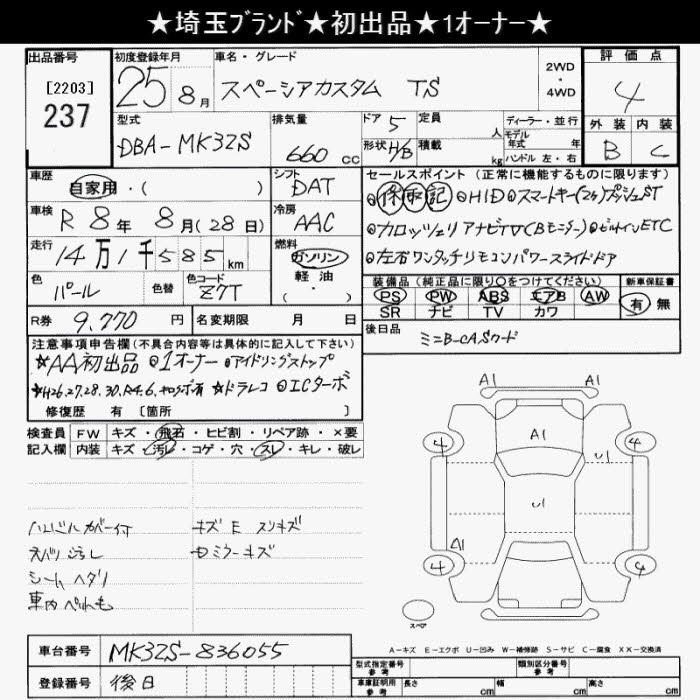 ★埼玉ブランド★初出品★1オーナー★
出品番号 初度登録年月 車名・グレード 評価点
[2203] 25 8月 スペーシアカスタム TS 2WD・4WD 4
237
型式 排気量 ドア 5 定員 人 ディーラー・並行 外装 内装
DBA-MK32S 660 cc 形状 H/B 積載 kg モデル年式 年 B C
ハンドル 左・右
車歴 シフト セールスポイント (正常に機能するものに限ります)
自家用・( ) DAT ◎保取記 ◎HID◎スマートキー(2ケ)プッシュST
車検 R 8年 8月(28日) 冷房 AAC ◎カロッツェリアナビTV(Bモニター)◎ビルトインETC
走行 14万1千585km 燃料 ガソリン ◎左右ワンタッチリモコンパワースライドドア
軽油・( )
色 パール 色替 色コード Z7T 装備品 (純正品に限り○をつけてください) 新車保証書
PS PW ABS エアB AW 有 無
SR ナビ TV カワ
R券 9,770円 名変期限 月 日 後日品 ミニB-CASカード
注意事項申告欄(不具合内容等は具体的に記入して下さい)
☆AA初出品 ◎1オーナー ◎アイドリングストップ
☆ドラレコ ◎ICターボ
修復歴 有 [箇所 ]
検査員 FW キズ・飛石・ヒビ割・リペア跡・×要
記入欄 内装 キズ・汚レ・コゲ・穴・スレ・キレ・破レ
A1 A1
4 A1 4
U1
U1
A1
4 4
スペア
ハンドルカバー付 キズ E スリキズ
天バリ汚レ
ミラーキズ
シートヘタリ
車内
A=キズ E=エクボ U=凹み W=補修跡 S=サビ C=腐食 XX=交換済
車台番号 MK32S-836055
型式指定番号 参考 類別区分番号 参考
登録番号 後日 車庫証明用 参考 長さ cm 幅 cm 高さ cm